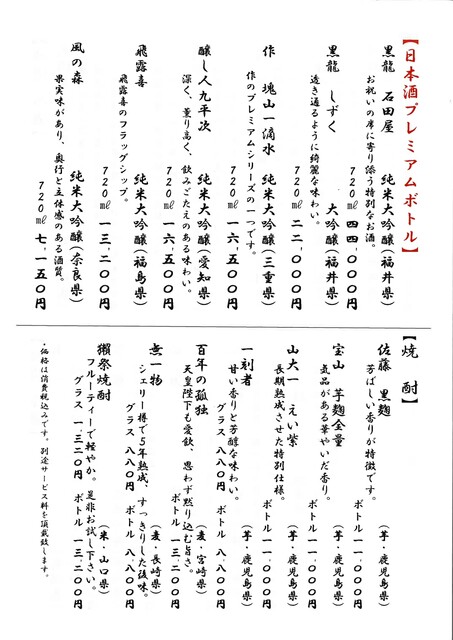 【日本酒プレミアムボトル】
黒龍 石田屋 純米大吟醸(福井県)
お祝いの席に寄り添う特別なお酒。
720㎖ 四四、〇〇〇円
黒龍 しずく 大吟醸(福井県)
透き通るように綺麗な味わい。
720㎖ 二二、〇〇〇円
作 槐山一滴水 純米大吟醸(三重県)
作のプレミアム・シリーズの一つです。
720㎖ 一六、五〇〇円
醸し人九平次 純米大吟醸(愛知県)
深く、薫り高く、飲みごたえのある味わい。
720㎖ 一六、五〇〇円
飛露喜 純米大吟醸(福島県)
飛露喜のフラッグシップ。
720㎖ 一三、二〇〇円
風の森 純米大吟醸(奈良県)
果実味があり、奥行と立体感のある酒質。
720㎖ 七、一五〇円
【焼酎】
佐藤 黒麹 (芋・鹿児島県)
芳ばしい香りが特徴です。
ボトル 一一、〇〇〇円
宝山 芋麹全量 (芋・鹿児島県)
気品がある華やいだ香り。
ボトル 一一、〇〇〇円
山大一 えい紫 (芋・鹿児島県)
長期熟成させた特別仕様。
ボトル 一一、〇〇〇円
一刻者 (芋・鹿児島県)
甘い香りと芳醇な味わい。
グラス 八八〇円 ボトル 八、八〇〇円
百年の孤独 (麦・宮崎県)
天皇陛下も愛飲、思わず黙り込む旨さ。
ボトル 一三、二〇〇円
無一物 (麦・長崎県)
シェリー樽で5年熟成、すっきりした後味。
グラス 八八〇円 ボトル 八、八〇〇円
獺祭焼酎 (米・山口県)
フルーティーで軽やか。是非お試し下さい。
グラス 一、三二〇円 ボトル 一三、二〇〇円
・価格は消費税込みです。別途サービス料を頂戴致します。